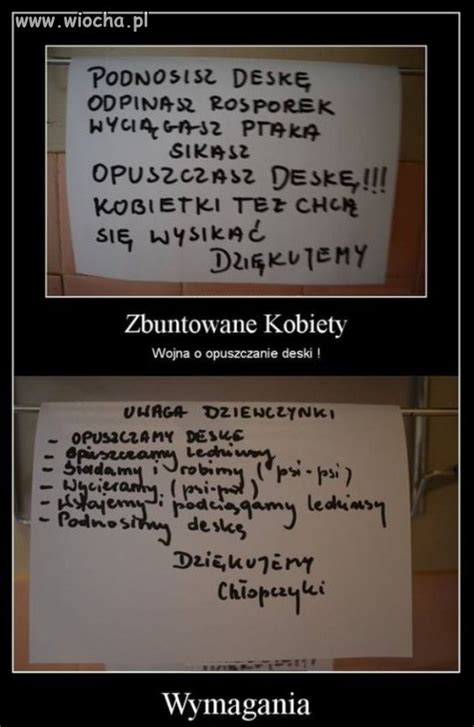 www.wiocha.pl
PODNOSISZ DESKĘ
ODPINASZ ROSPOREK
WYCIĄGASZ PTAKA
SIKASZ
OPUSZCZASZ DESKĘ!!!
KOBIETKI TEŻ CHCĄ
SIĘ WYSIKAĆ
DZIĘKUJEMY
Zbuntowane Kobiety
Wojna o opuszczanie deski !
UWAGA DZIEWCZYNKI
- OPUSZCZAMY DESKĘ
- Opuszczamy
- Siadamy i robimy (psi-psi)
- Wycieramy
- Wstajemy i podciągamy
- Podnosimy deskę
DZIĘKUJEMY
Chłopczyki
Wymagania